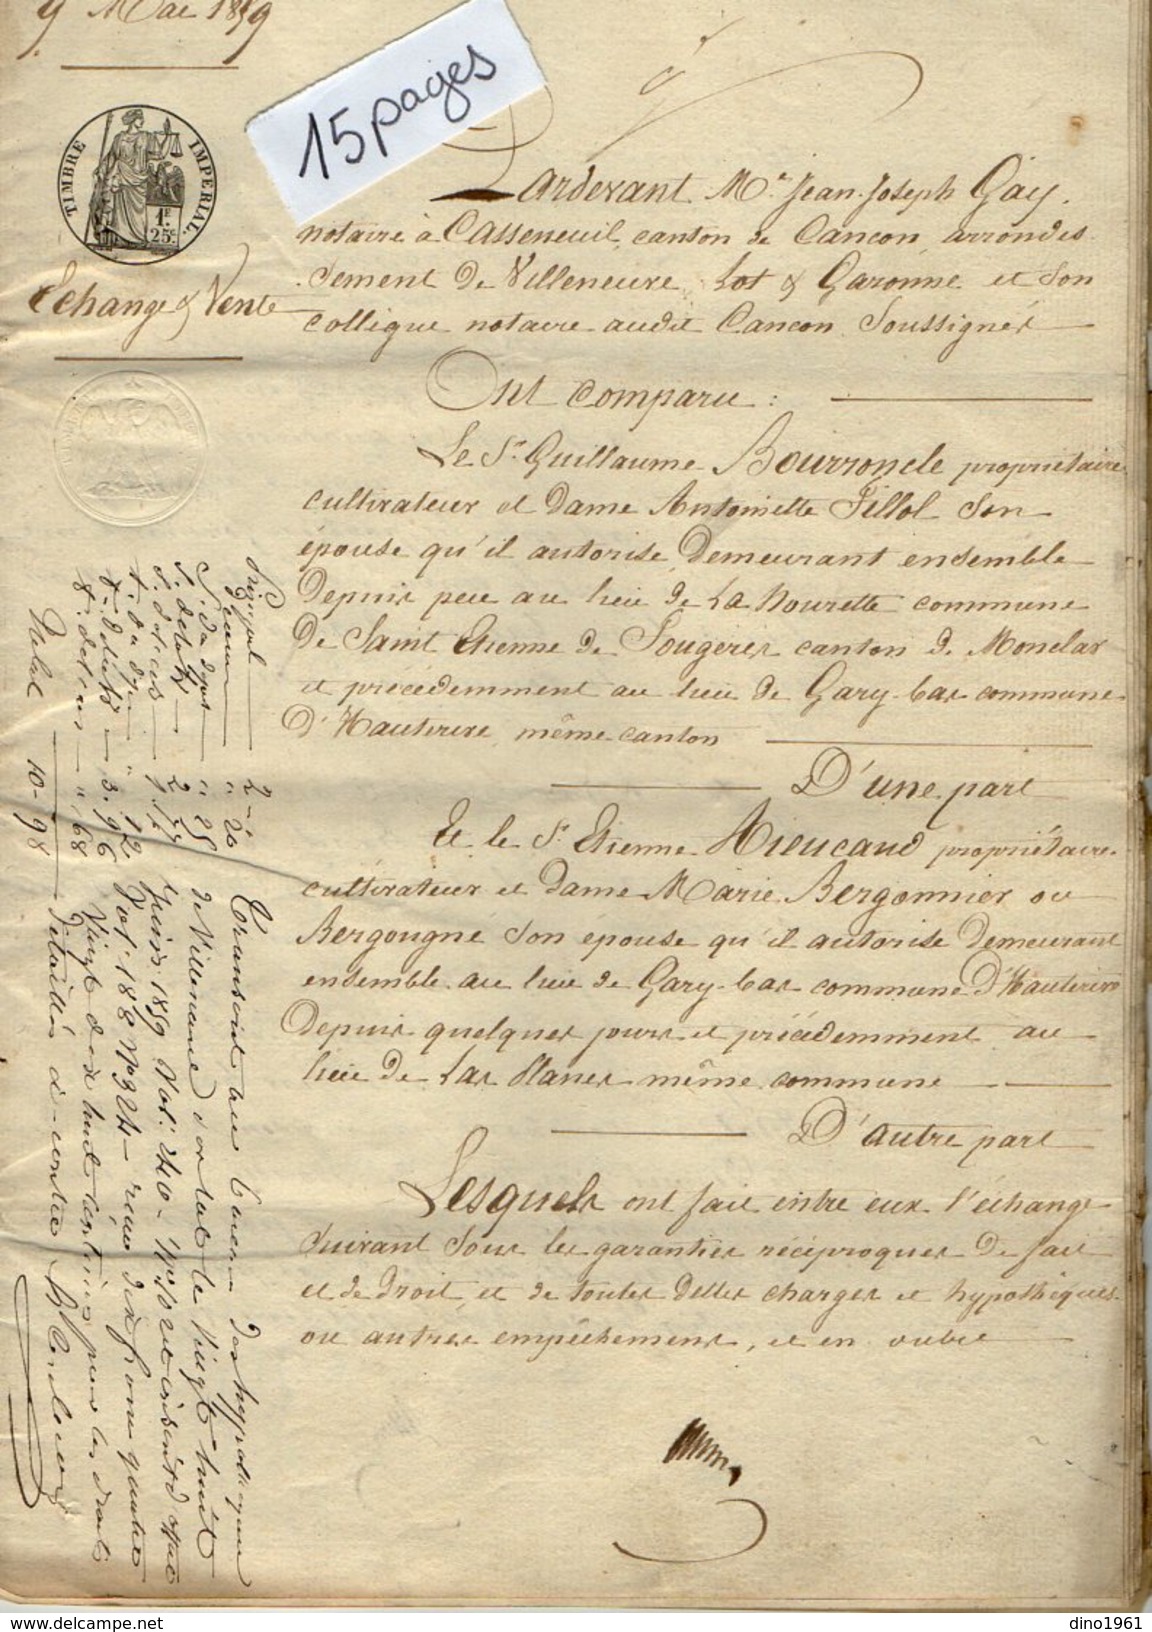 9 Mai 1859
15 pages
TIMBRE IMPÉRIAL
1F. 25c.
Echange & Vente
Pardevant Me. Jean-Joseph Gay,
notaire à Casseneuil, canton de Cancon, arrondis
sement de Villeneuve, Lot & Garonne et son
collègue notaire audit Cancon Soussignés
Ont comparu :
Le Sr. Guillaume Bourroncle propriétaire
cultivateur et Dame Antoinette Fillol son
épouse qu'il autorise, Demeurant ensemble
Depuis peu au lieu de La Hourette commune
De Saint Etienne de Fougères canton de Monclar
et précédemment au lieu de Gary-bas commune
D'Hauterive, même canton
D'une part
Et le Sr. Etienne Mieucaud propriétaire
cultivateur et Dame Marie Bergonnier ou
Bergougne son épouse qu'il autorise Demeurant
ensemble au lieu de Gary-bas commune D'Hauterive
Depuis quelques jours et précédemment au
lieu de Las Planes même commune
D'autre part
Lesquels ont fait entre eux l'échange
Suivant sous les garanties réciproques de fait
et de Droit et de toutes dettes charges et hypothèques
ou autres empêchements, et en outre
Transcrit au bureau des hypothèques
de Villeneuve sur Lot le vingt huit
Juin 1859 Vol: 240
Vol: 188 N° 324 reçu dix francs quatre
Vingt dix huit centimes pour les droits
Détaillés ci-contre
Total 10-98
dino1961